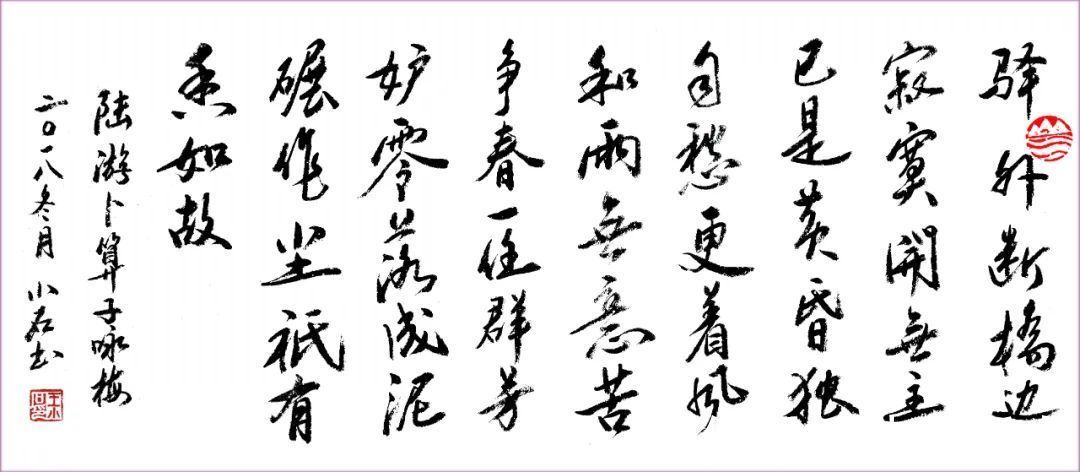 驿外断橋边
寂寞開無主
已是黄昏独
自愁更着风
和雨無意苦
争春一任群芳
妒零落成泥
碾作尘祇有
香如故
陆游卜算子咏梅
二〇一八冬月 小石书